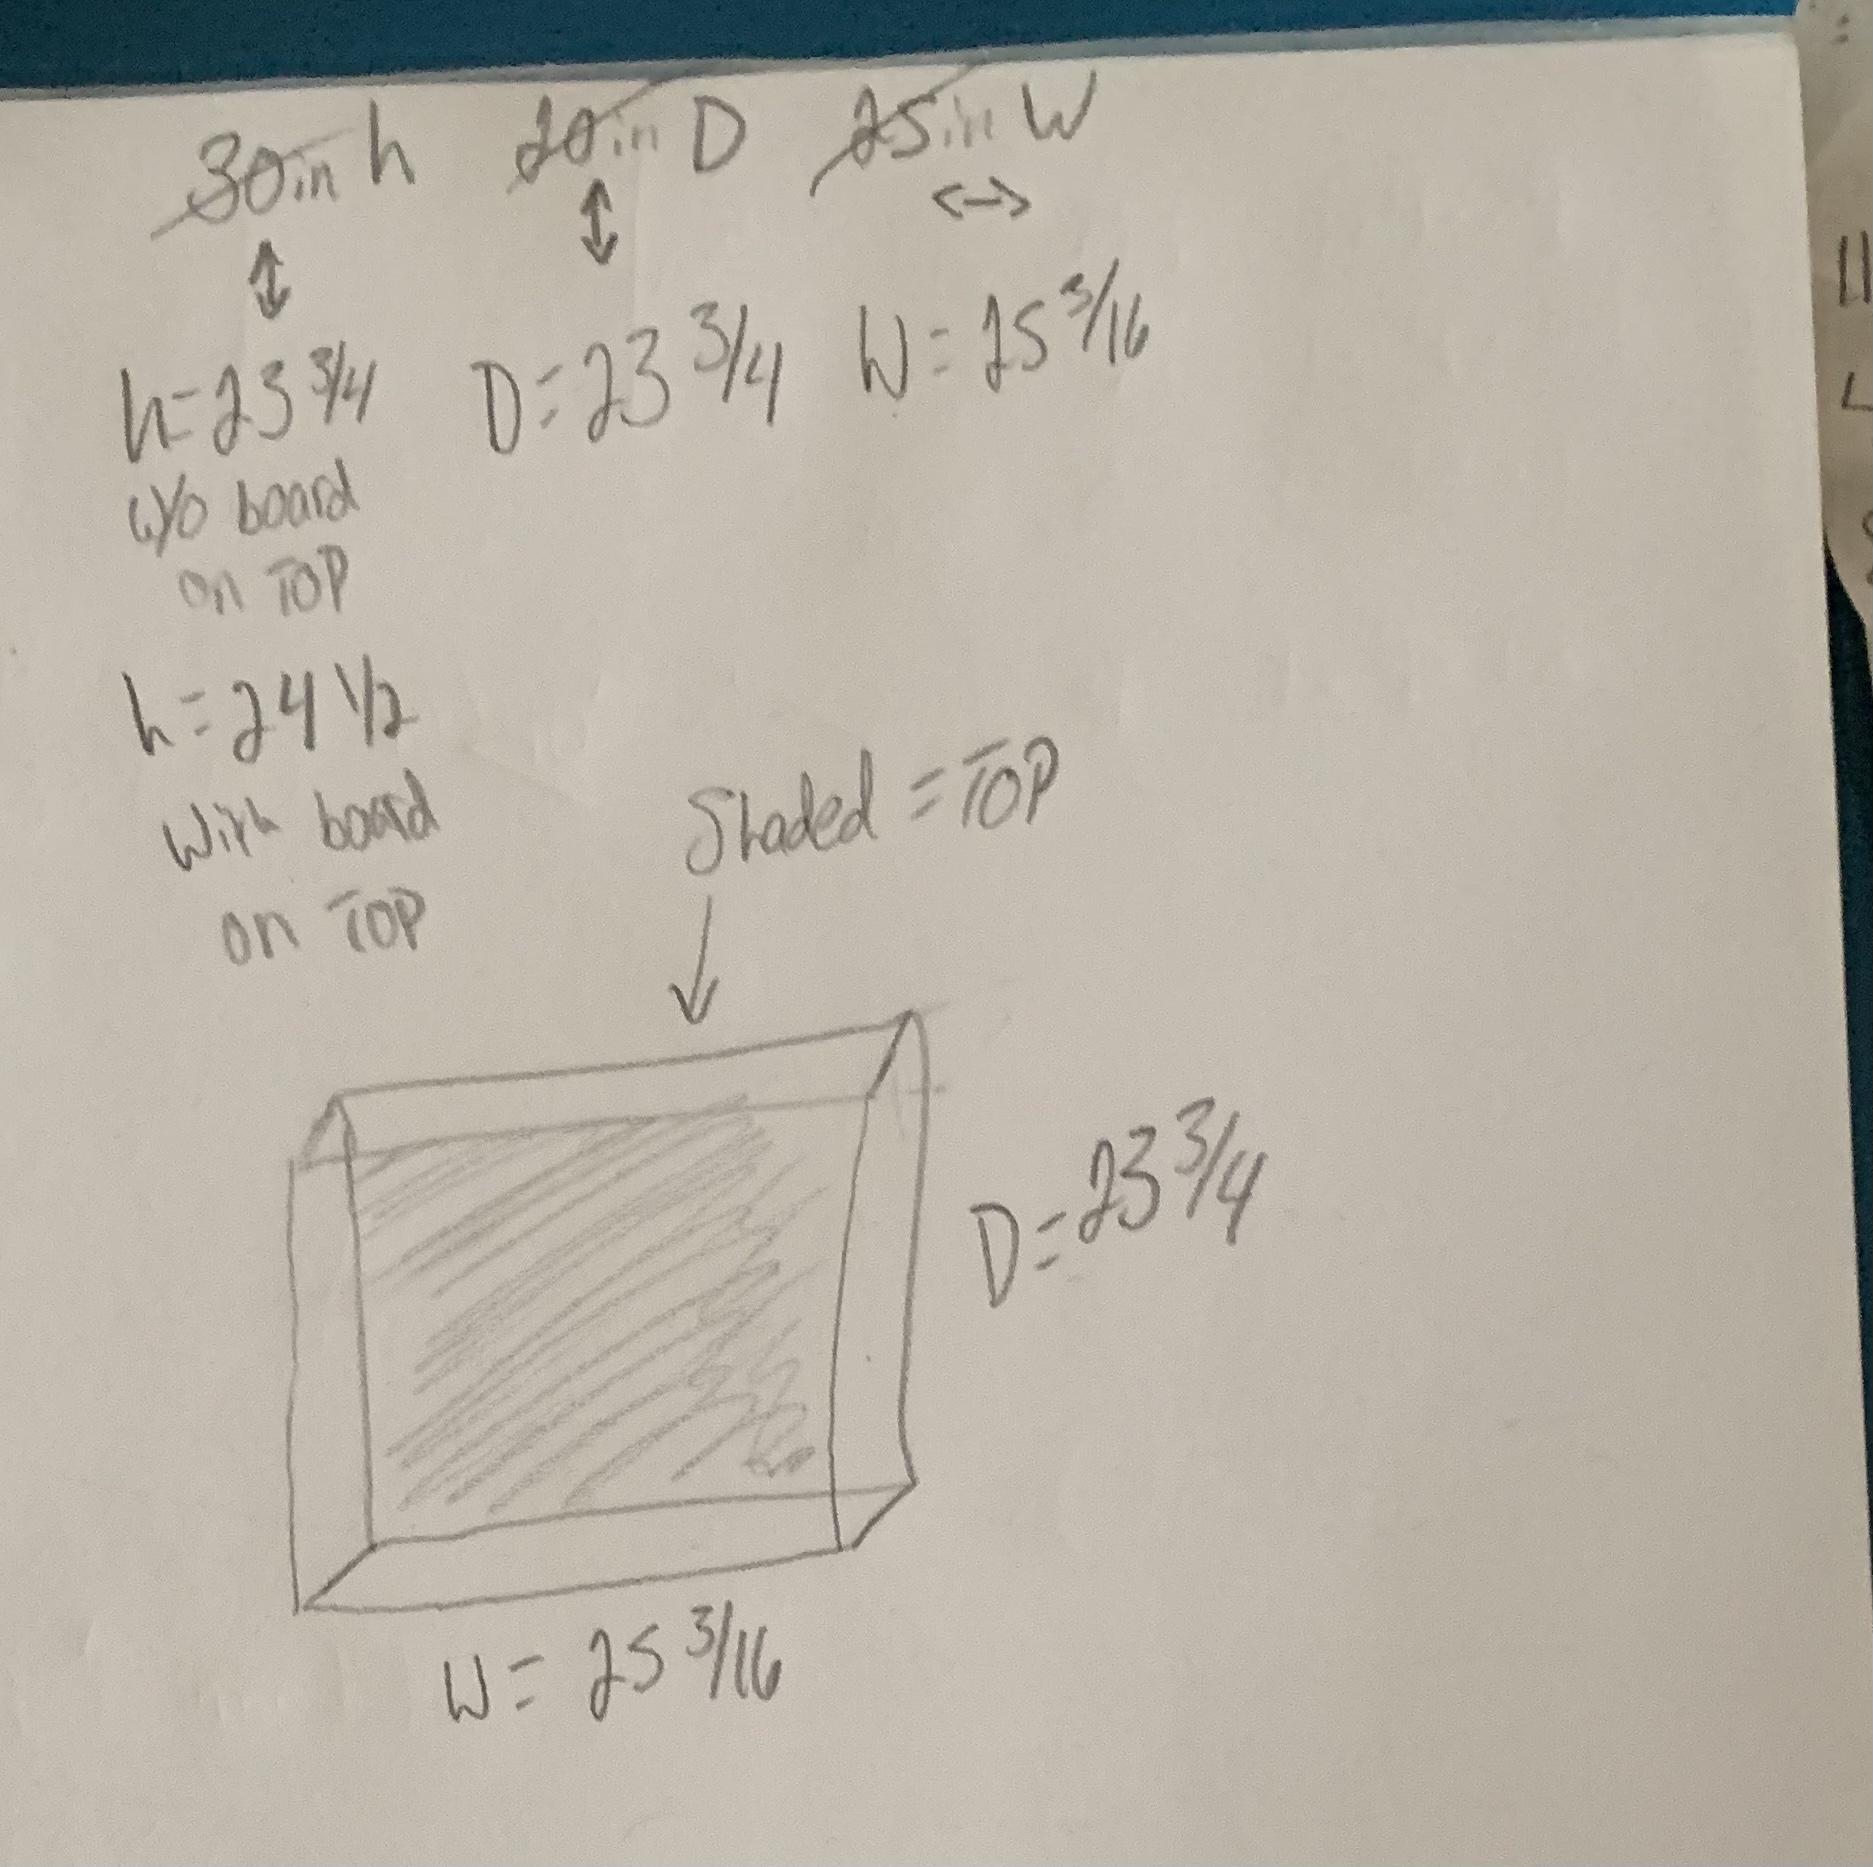 30in h 20in D 25in W
h=23 3/4 D=23 3/4 W=25 3/16
w/o board
on TOP
h=24 1/2
With board
on TOP
Shaded = TOP
D=23 3/4
W= 25 3/16